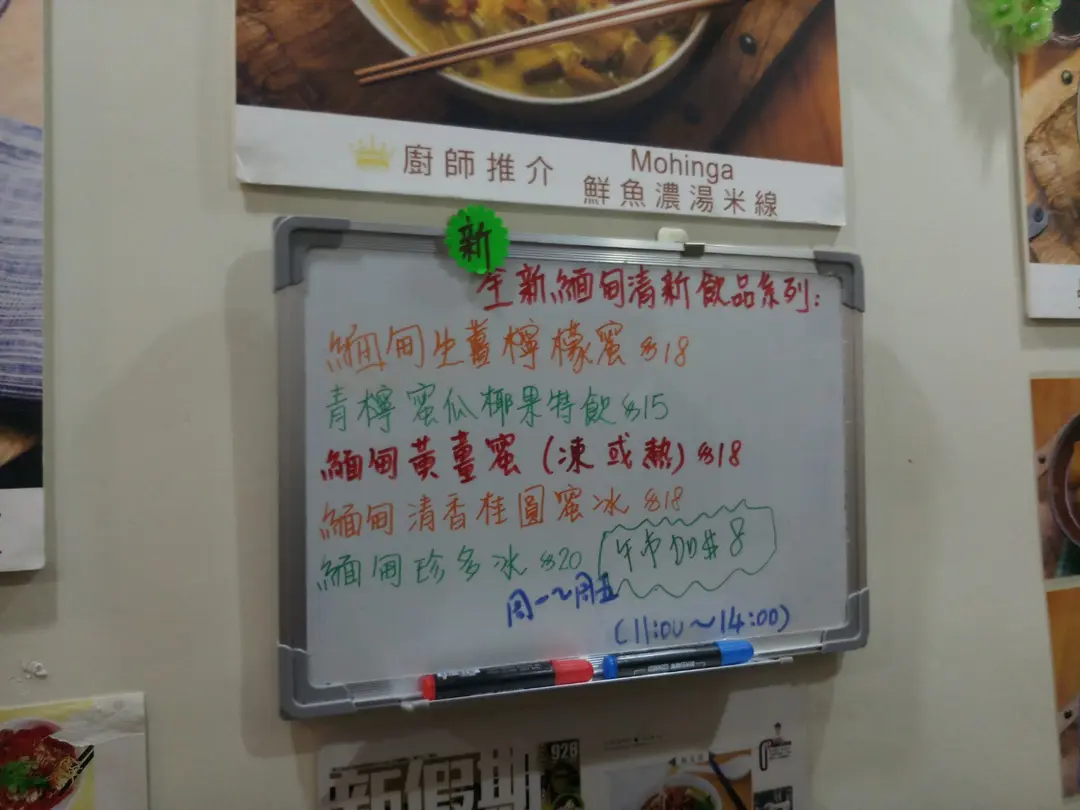 廚師推介
Mohinga
鮮魚濃湯米線
新
全新緬甸清新飲品系列:
緬甸生薑檸檬蜜 $18
青檸蜜瓜椰果特飲 $15
緬甸黃薑蜜 (凍或熱) $18
緬甸清香桂圓蜜冰 $18
緬甸珍多冰 $20
午市加$8
周一~周五
(11:00~14:00)
新假期
928